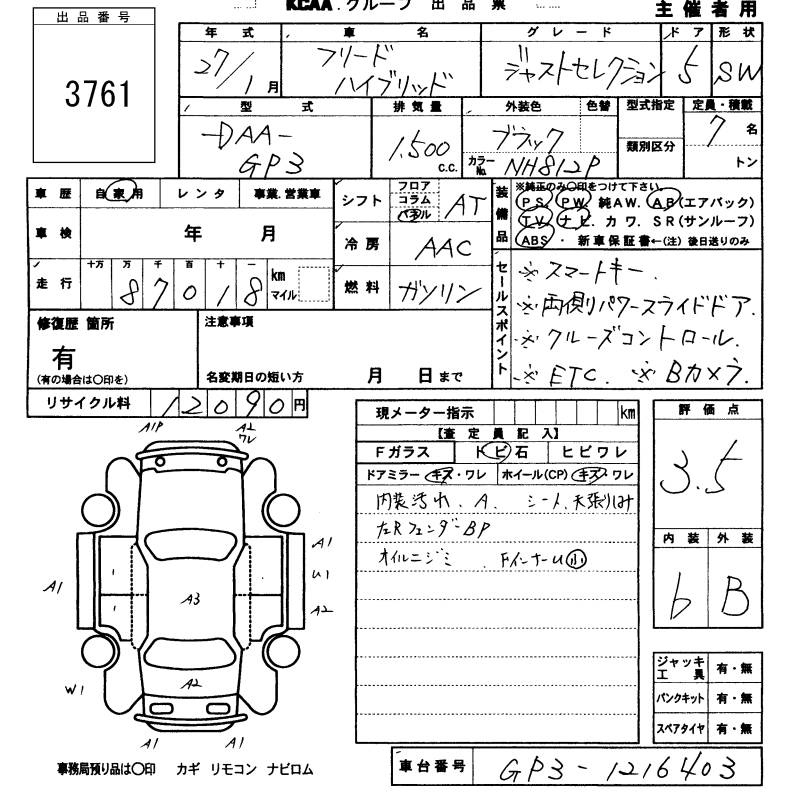 KCAA. グループ 出品票
主催者用
出品番号
3761
年式 車名 グレード ドア 形状
27/1月 フリード ハイブリッド ジャストセレクション 5 SW
型式 排気量 外装色 色替 型式指定 定員・積載
DAA-GP3 1.500 c.c. ブラック 7名
カラーNo. NH812P 類別区分 トン
車歴 自家用 レンタ 事業.営業車
車検 年 月
走行 十万 万 千 百 十 一 km マイル
87018
シフト フロア コラム パネル AT
冷房 AAC
燃料 ガソリン
装備品 ※純正のみ〇印をつけて下さい。
PS. PW. 純AW. AB(エアバック)
TV. ナビ. カワ. SR(サンルーフ)
ABS ・ 新車保証書←(注) 後日送りのみ
セールスポイント
※スマートキー.
※両側パワースライドドア.
※クルーズコントロール.
※ETC. ※Bカメラ.
修復歴 箇所
有
(有の場合は〇印を)
注意事項
名変期日の短い方 月 日まで
リサイクル料 12090円
現メーター指示 km
【査定員記入】
Fガラス トビ石 ヒビワレ
ドアミラー キズ・ワレ ホイール(CP) キズ・ワレ
内装汚れ. A. シート.天張りしみ
左RフェンダーBP
オイルニジミ FインナーU小
評価点
3.5
内装 外装
b B
ジャッキ工具 有・無
パンクキット 有・無
スペアタイヤ 有・無
A1P A2 ワレ
A1
A1 U1
A3 A2
W1 A2
A1 A1
事務局預り品は〇印 カギ リモコン ナビロム
車台番号 GP3-1216403